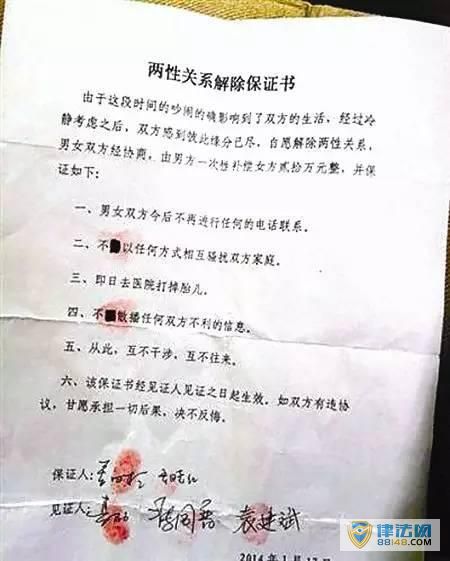 两性关系解除保证书
由于这段时间的吵闹的确影响到了双方的生活，经过冷
静考虑之后，双方感到彼此缘分已尽，自愿解除两性关系，
男女双方经协商，由男方一次性补偿女方贰拾万元整，并保
证如下：
一、男女双方今后不再进行任何的电话联系。
二、不以任何方式相互骚扰双方家庭。
三、即日去医院打掉胎儿。
四、不散播任何双方不利的信息。
五、从此，互不干涉，互不往来。
六、该保证书经见证人见证之日起生效，如双方有违协
议，甘愿承担一切后果，决不反悔。
保证人：
见证人： 袁建斌
2014年1月17日
律法网
88148.com